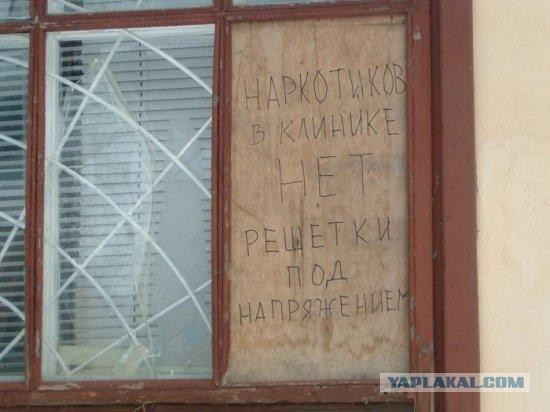 НАРКОТИКОВ
В КЛИНИКЕ
НЕТ
РЕШЕТКИ
ПОД
НАПРЯЖЕНИЕМ
YAPLAKAL.COM